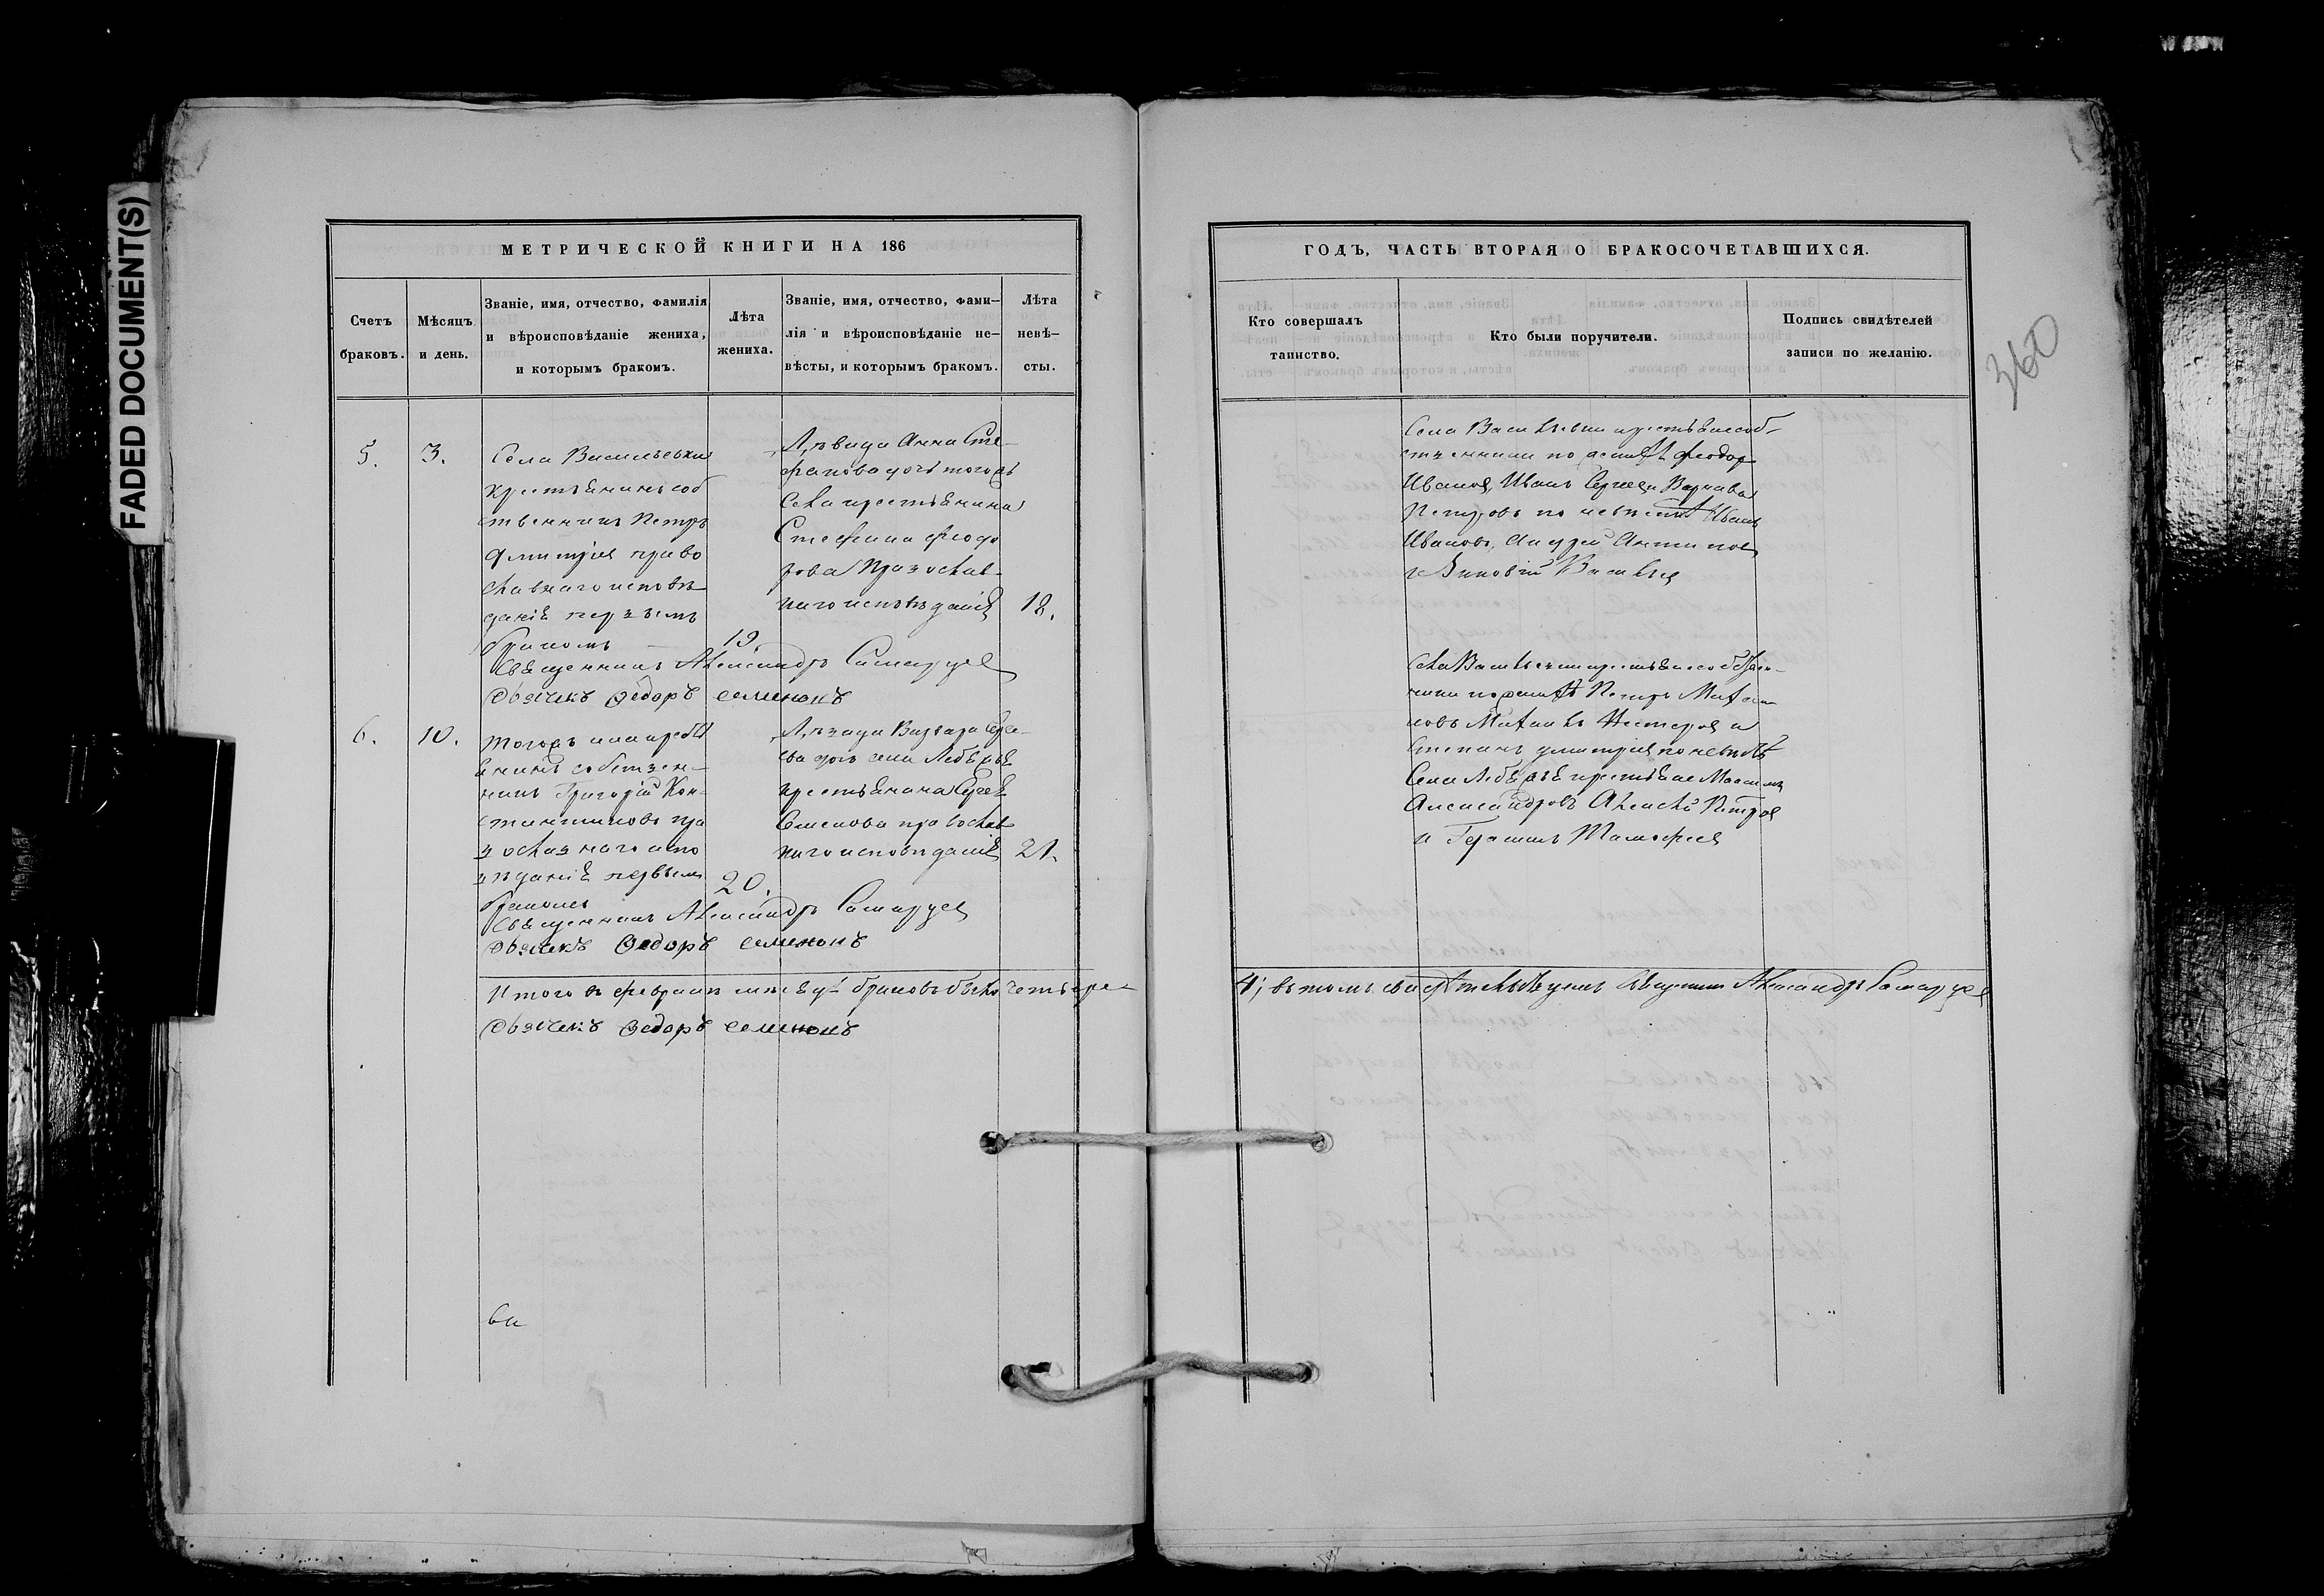 FADED DOCUMENT(S)
МЕТРИЧЕСКОЙ КНИГИ НА 186
Счетъ
браковъ.
Мѣсяцъ
и день.
Званіе, имя, отчество, фамилія
и вѣроисповѣданіе жениха,
и которымъ бракомъ.
Лѣта
жениха.
Званіе, имя, отчество, фами-
лія и вѣроисповѣданіе не-
вѣсты, и которымъ бракомъ.
Лѣта
невѣ-
сты.
5.
3.
Села Васильевки
крестьянинъ соб
ственникъ Петръ
Дмитріев право
славнаго исповѣ
данія первымъ
бракомъ
19.
Дѣвица Анна Сте-
фанова дочь тогожъ
села крестьянина
Стефана Феодо
рова православ-
наго исповѣданія
18.
Священникъ Александръ
Дьячекъ Ѳедоръ Семеновъ
6.
10.
тогожъ села крестья
янинъ собствен-
никъ Григорій Кон-
стантиновъ пра
вославнаго испо
вѣданія первымъ
бракомъ
20.
Дѣвица Варвара Серге-
ева дочь села
крестьянина Сергея
Семенова православ
наго исповѣданія
21.
Священникъ Александръ
Дьячекъ Ѳедоръ Семеновъ
Итого въ февралѣ мѣсяцѣ браковъ было четыре
Дьячекъ Ѳедоръ Семеновъ
ГОДЪ, ЧАСТЬ ВТОРАЯ О БРАКОСОЧЕТАВШИХСЯ.
Кто совершалъ
таинство.
Кто были поручители.
Подпись свидѣтелей
записи по желанію.
360
Села Васильевки крестьяне соб-
ственники по женихѣ Феодор
Иванов, Иванъ Сергеев и Варнава
Петровъ по невѣстѣ Иванъ
Ивановъ, Андрей Антипов
и Зиновій Васильев
Села Васильевки крестьяне собствен-
ники по женихѣ Петръ
Михаилъ Нестеров и
Степанъ Дмитріев по невѣстѣ
Села крестьяне Максимъ
Александровъ Алексѣй Петров
и Герасимъ Тимофеев
4; въ томъ свидѣтельствуемъ Священникъ Александръ